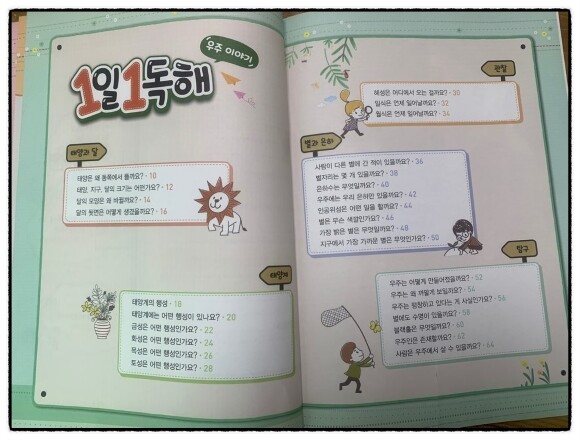 우주 이야기
1일1독해
태양과 달
태양은 왜 동쪽에서 뜰까요? · 10
태양, 지구, 달의 크기는 어떤가요? · 12
달의 모양은 왜 바뀔까요? · 14
달의 뒷면은 어떻게 생겼을까요? · 16
태양계
태양계의 행성 · 18
태양계에는 어떤 행성이 있나요? · 20
금성은 어떤 행성인가요? · 22
화성은 어떤 행성인가요? · 24
목성은 어떤 행성인가요? · 26
토성은 어떤 행성인가요? · 28
관찰
혜성은 어디에서 오는 걸까요? · 30
일식은 언제 일어날까요? · 32
월식은 언제 일어날까요? · 34
별과 은하
사람이 다른 별에 간 적이 있을까요? · 36
별자리는 몇 개 있을까요? · 38
은하수는 무엇일까요? · 40
우주에는 우리 은하만 있을까요? · 42
인공위성은 어떤 일을 할까요? · 44
별은 무슨 색깔인가요? · 46
가장 밝은 별은 무엇일까요? · 48
지구에서 가장 가까운 별은 무엇인가요? · 50
탐구
우주는 어떻게 만들어졌을까요? · 52
우주는 왜 까맣게 보일까요? · 54
우주는 팽창하고 있다는 게 사실인가요? · 56
별에도 수명이 있을까요? · 58
블랙홀은 무엇일까요? · 60
우주인은 존재할까요? · 62
사람은 우주에서 살 수 있을까요? · 64